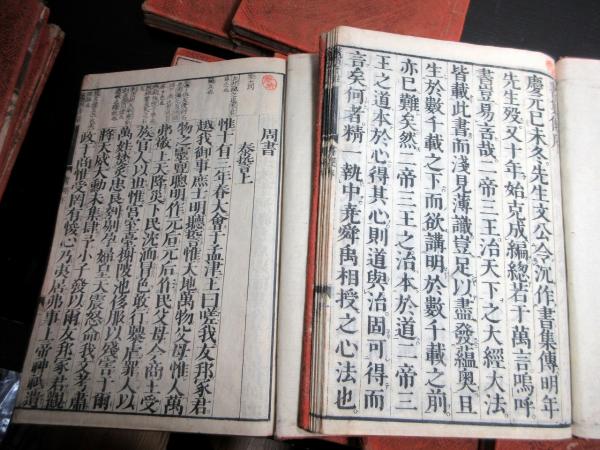 慶元已未冬先生文公令沉作書集傳明年
先生歿又十年始克成編總若干萬言嗚呼
書豈易言哉二帝三王治天下之大經大法
皆載此書而淺見薄識豈足以盡發蘊奧且
生於數千載之下而欲講明於數千載之前
亦已難矣然二帝三王之治本於道二帝三
王之道本於心得其心則道與治固可得而
言矣何者精一執中堯舜禹相授之心法也
周書
泰誓上
惟十有三年春大會于孟津王曰嗟我友邦冢君
越我御事庶士明聽誓惟天地萬物父母惟人萬
物之靈亶聰明作元后元后作民父母今商王受
弗敬上天降災下民沈湎冒色敢行暴虐罪人以
族官人以世惟宮室臺榭陂池侈服以殘害于爾
萬姓焚炙忠良刳剔孕婦皇天震怒命我文考肅
將天威大勳未集肆予小子發以爾友邦冢君觀
政于商惟受罔有悛心乃夷居弗事上帝神祇遺